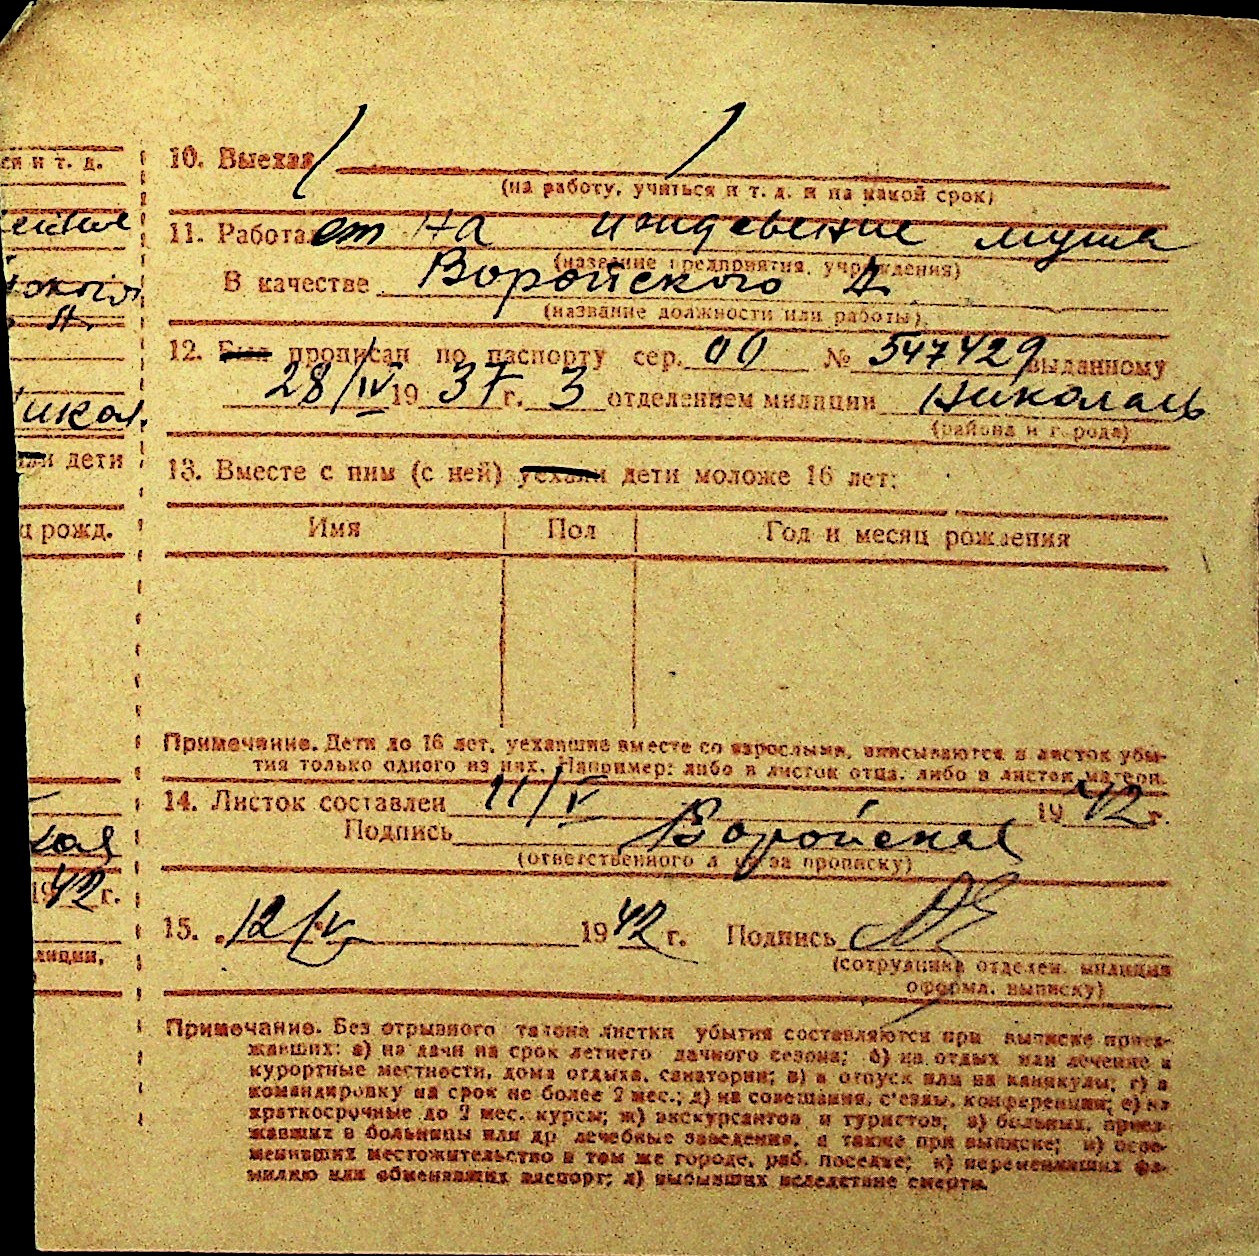 си и т. д.
10. Выехал
(на работу, учиться и т. д. и на какой срок)
11. Работает на иждевение мужа
(название предприятия, учреждения)
В качестве Воройского А
(название должности или работы)
12. Был прописан по паспорту сер. 00 № 547429 выданному
28/IV 1937 г. 3 отделением милиции Николаев
(района и города)
дети
13. Вместе с ним (с ней) уехали дети моложе 16 лет:
ц рожд.
Имя Пол Год и месяц рождения
Примечание. Дети до 16 лет, уехавшие вместе со взрослыми, вписываются в листок убы-
тия только одного из них. Например: либо в листок отца, либо в листок матери.
14. Листок составлен 11/V 1942 г.
Подпись Воройская
(ответственного лица за прописку)
1942 г.
15. 12/V 1942 г. Подпись
лиции,
(сотрудника отделен. милиции
оформл. выписку)
Примечание. Без отрывного талона листки убытия составляются при выписке приез-
жавших: а) на дачи на срок летнего дачного сезона; б) на отдых или лечение в
курортные местности, дома отдыха, санатории; в) в отпуск или на каникулы; г) в
командировку на срок не более 2 мес.; д) на совещания, с'езды, конференции; е) на
краткосрочные до 2 мес. курсы; ж) экскурсантов и туристов; з) больных, приез-
жавших в больницы или др. лечебные заведения, а также при выписке; и)
менивших местожительство в том же городе, раб. поселке; к) переменивших фа-
милию или обменявших паспорт; л) выбывших вследствие смерти.